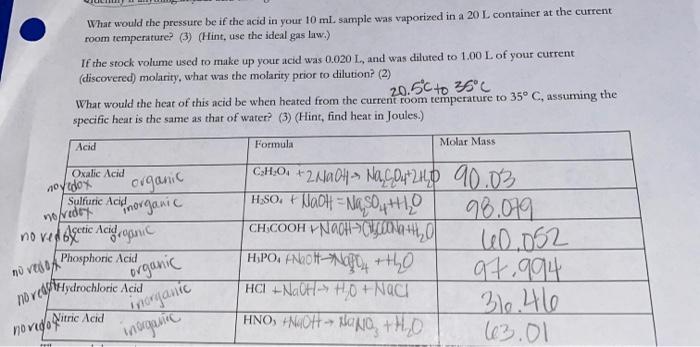 What would the pressure be if the acid in your 10 mL sample was vaporized in a 20 L container at the current
room temperature? (3) (Hint, use the ideal gas law.)
If the stock volume used to make up your acid was 0.020 L, and was diluted to 1.00 L of your current
(discovered) molarity, what was the molarity prior to dilution? (2)
20.5°C to 35°C
What would the heat of this acid be when heated from the current room temperature to 35° C, assuming the
specific heat is the same as that of water? (3) (Hint, find heat in Joules.)
Acid Formula Molar Mass
Oxalic Acid organic C₂H₂O₄ + 2NaOH → Na₂C₂O₄ + 2H₂O 90.03
no redox
Sulfuric Acid inorganic H₂SO₄ + NaOH = Na₂SO₄ + H₂O 98.079
no redox
no redox Acetic Acid organic CH₃COOH + NaOH → CH₃COONa + H₂O 60.052
no redox Phosphoric Acid organic H₃PO₄ + NaOH → + H₂O 97.994
no redox Hydrochloric Acid inorganic HCl + NaOH → H₂O + NaCl 36.46
no redox Nitric Acid inorganic HNO₃ + NaOH → NaNO₃ + H₂O 63.01